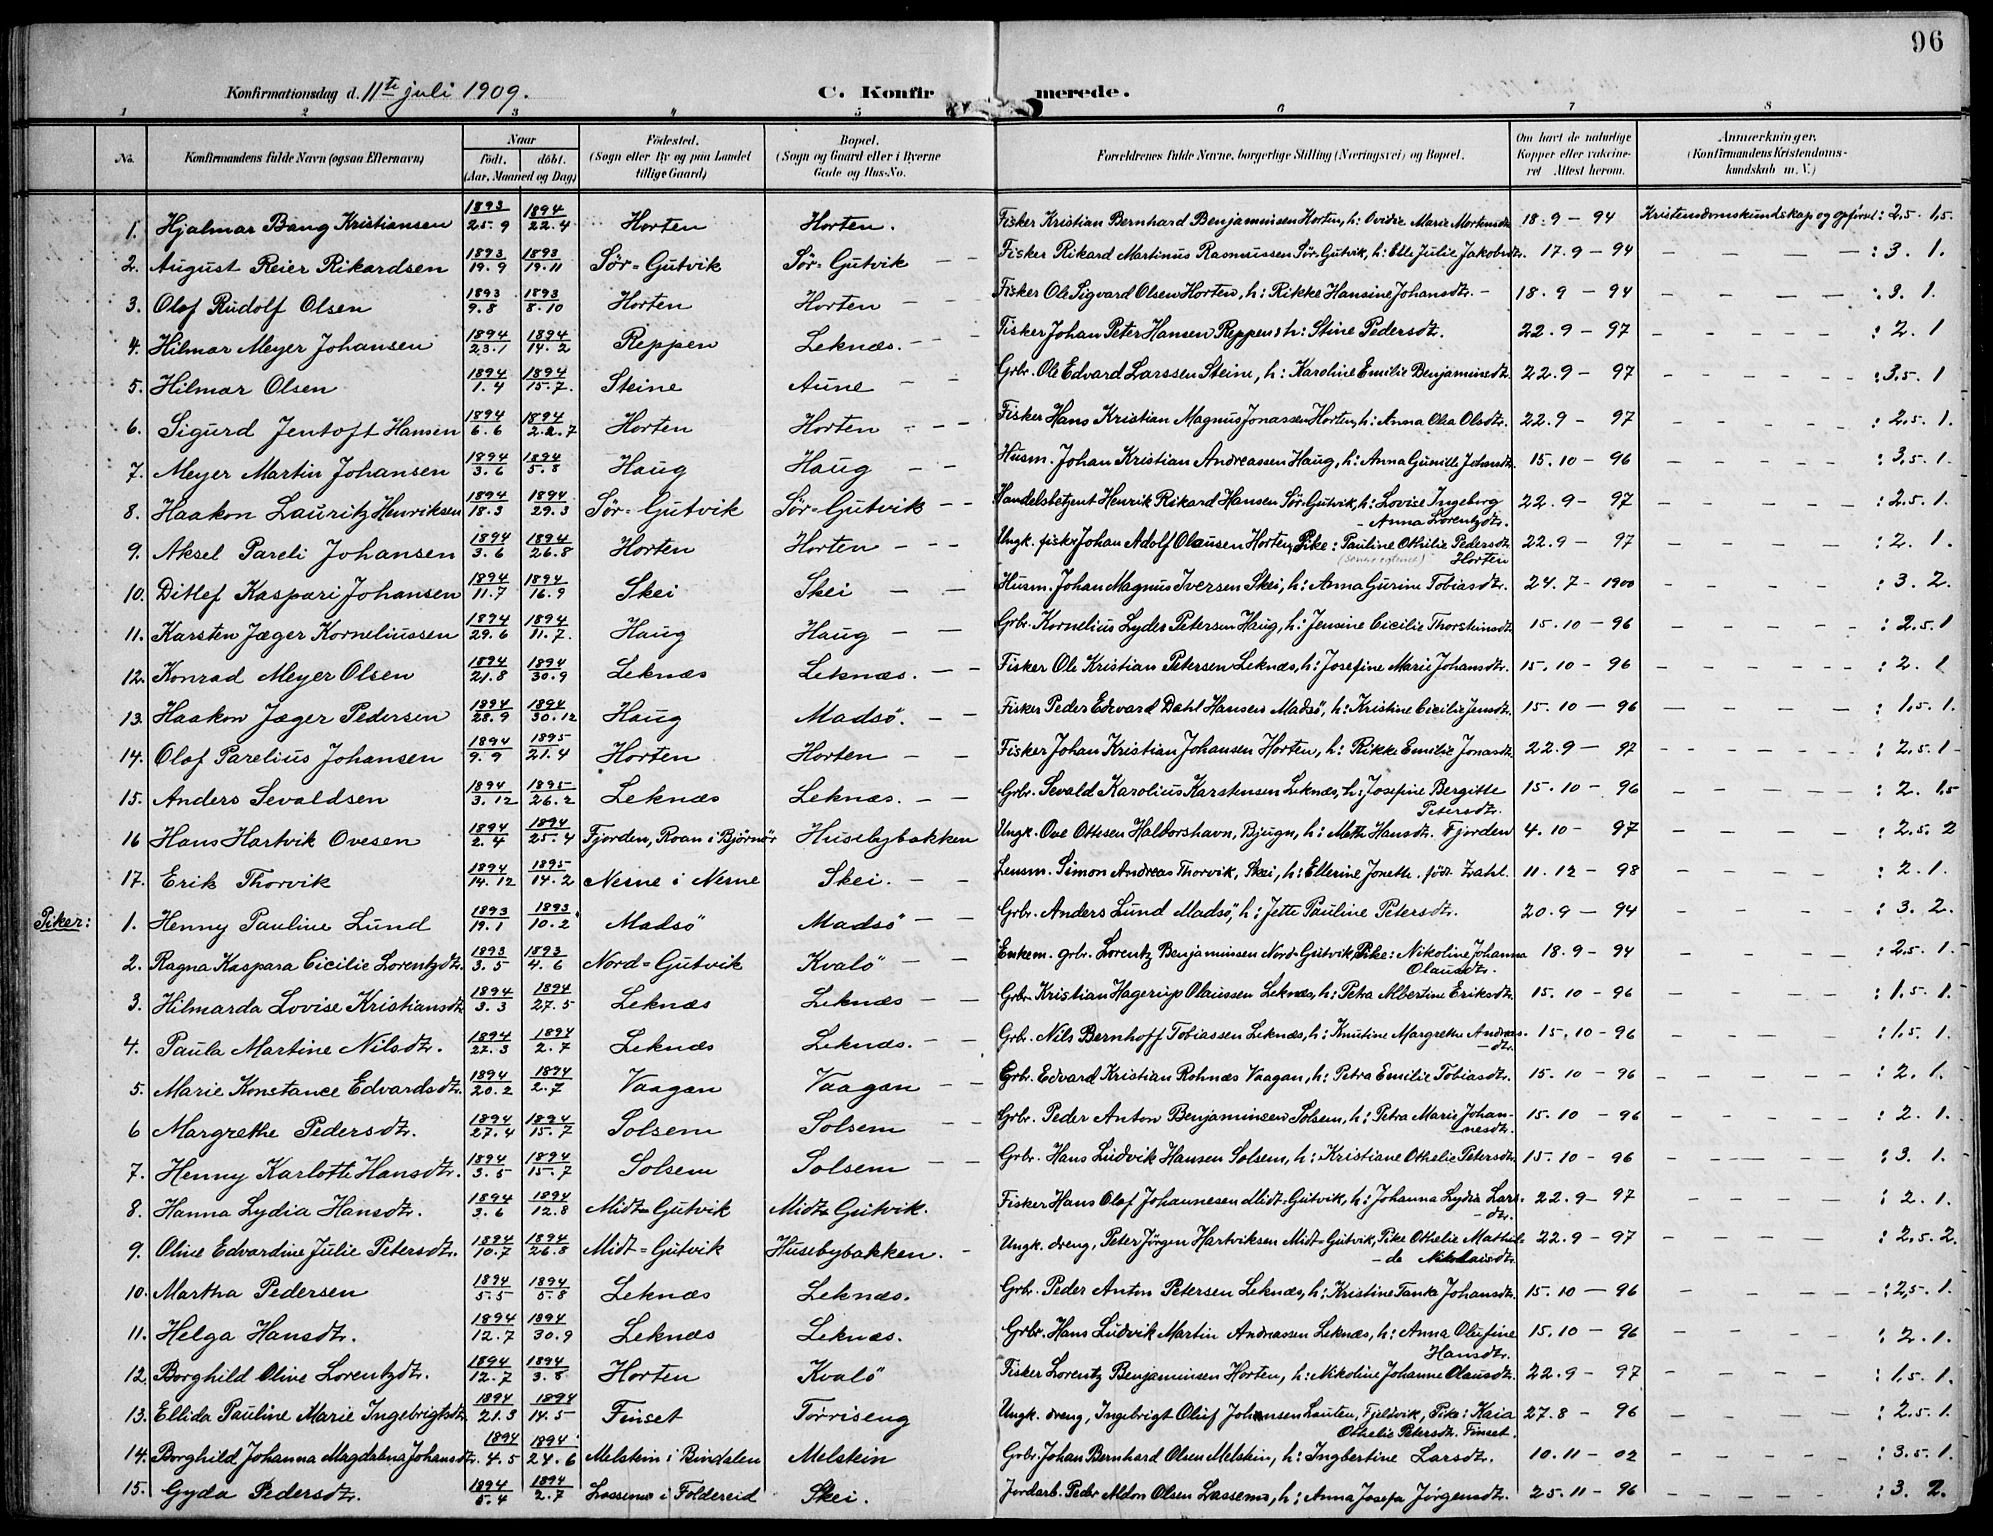 96
Konfirmationsdag d. 11te juli 1909. C. Konfirmerede.
1 2 3 4 5 6 7 8
No. Konfirmandens fulde Navn (ogsaa Efternavn) Naar födt. döbt. (Aar, Maaned og Dag) Födested. (Sogn eller By og paa Landet tillige Gaard) Bopæl. (Sogn og Gaard eller i Byerne Gade og Hus-No. Forældrenes fulde Navne, borgerlige Stilling (Næringsvei) og Bopæl. Om havt de naturlige Kopper eller vakcineret Attest herom. Anmærkninger. (Konfirmandens Kristendomskundskab m. V.)
1. Hjalmar Bang Kristiansen 1893 25.9 1894 22.4 Horten Horten. Fisker Kristian Bernhard Benjaminsen Horten, h: Ovidie Marie Mortensdtr. 18.9 – 94 Kristendomskundskap og opførsel: 2,5. 1,5.
2. August Reier Rikardsen 1893 19.9 1893 19.11 Sör-Gutvik Sör-Gutvik – – Fisker Rikard Martinus Rasmussen Sör-Gutvik, h: Elle Julie Jakobsdtr. 17.9 – 94 – – – – : 3. 1.
3. Olaf Rudolf Olsen 1893 9.8 1893 8.10 Horten Horten – – Fisker Ole Sigvard Olsen Horten, h: Rikke Hansine Johansdtr. – 18.9 – 94 – – – – : 3. 1.
4. Hilmar Meyer Johansen 1894 23.1 1894 14.2 Reppen Leknæs. – – Fisker Johan Peter Hansen Reppen, h: Stine Pedersdtr. 22.9 – 97 – – – – : 2. 1
5. Hilmar Olsen 1894 1.4 1894 15.7. Steine Aune – – Grbr. Ole Edvard Larssen Steine, h: Karoline Emilie Benjaminsdtr. 22.9 – 97 – – – – : 3,5. 1
6. Sigurd Jentoft Hansen 1894 6.6 1894 2.7 Horten Horten – – – Fisker Hans Kristian Magnus Jonassen Horten, h: Anna Olea Olsdtr. 22.9 – 97 – – – – : 2,5. 1.
7. Meyer Martin Johansen 1894 3.6 1894 5.8 Haug Haug – – Husm. Johan Kristian Andreassen Haug, h: Anna Gunille Johnsdtr. 15.10 – 96 – – – – : 3,5. 1.
8. Haakon Lauritz Henriksen 1894 18.3 1894 29.3 Sör-Gutvik Sör-Gutvik – – Handelsbetjent Henrik Rikard Hansen Sör-Gutvik, h: Lovise Ingeborg 22.9 – 97 – – – – : 2,5. 1.
– Anna Lorentzdtr.
9. Aksel Pareli Johansen 1894 3.6 1894 26.8 Horten Horten – – – Ungk. fisker Johan Adolf Olausen Horten, Pike: Pauline Othilie Pedersdtr. 22.9 – 97 – – – – : 2. 1.
Horten
10. Ditlef Kaspari Johansen 1894 11.7 1894 16.9 Skei Skei – – Husm. Johan Magnus Iversen Skei, h: Anna Gurine Tobiasdtr. 24.7 – 1900 – – – – : 3. 2.
11. Karsten Jæger Korneliussen 1894 29.6 1894 11.7. Haug Haug – – Grbr. Kornelius Lyder Petersen Haug, h: Jensine Cicilie Thorsteinsdtr. 15.10 – 96 – – – – : 2,5. 1
12. Konrad Meyer Olsen 1894 21.8 1894 30.9 Leknæs Leknæs. – – Fisker Ole Kristian Petersen Leknæs, h: Josefine Marie Johansdtr. 15.10 – 96 – – – – : 2. 1
13. Haakon Jæger Pedersen 1894 28.9 1894 30.12 Haug Madsö. – – Fisker Peder Edvard Dahl Hansen Madsö, h: Kristine Cicilie Jensdtr. 15.10 – 96 – – – – : 1,5. 1.
14. Olaf Parelius Johansen 1894 9.9 1895 21.4 Horten Horten – – Fisker Johan Kristian Johansen Horten, h: Rikke Emilie Jonasdtr. 22.9 – 97 – – – – : 2,5. 1
15. Anders Sevaldsen 1894 3.12 1895 26.2 Leknæs Leknæs. – – Grbr. Sevald Karolius Karstensen Leknæs, h: Josefine Bergitte 15.10 – 96 – – – – : 2. 1,5
Petersdtr.
16 Hans Hartvik Ovesen 1894 2.4 1894 25.4 Fjorden, Roan i Björnör Husebybakken Ungk. Ove Ottesen Haldorshavn, Bjugn, h: Meth Hansdtr. Fjorden 4.10 – 97 – – – – : 2,5. 2
17. Erik Thorvik 1894 14.12 1895 14.2 Nesne i Nesne Skei. – – Lensm. Simon Andreas Thorvik, Skei, h: Ellerine Jonette. födt Zahl. 11.12 – 98 – – – – : 2. 1.
Piker: 1. Henny Pauline Lund 1893 19.1 1893 10.2 Madsö Madsö – – Grbr. Anders Lund Madsö, h: Jette Pauline Petersdtr. 20.9 – 94 – – – – : 3. 2.
2. Ragna Kaspara Cicilie Lorentzdtr. 1893 3.5 1893 4.6 Nord-Gutvik Kvalö – – Enkem. grbr. Lorentz Benjaminsen Nord-Gutvik, Pike: Nikoline Johanna 18.9 – 94 – – – – : 2,5. 1.
Olausdtr.
3. Hilmarda Lovise Kristiansdtr. 1894 3.3 1894 27.5 Leknæs Leknæs – – Grbr. Kristian Hagerup Olaussen Leknæs, h: Petra Albertine Eriksdtr. 15.10 – 96 – – – – : 1,5. 1.
4. Paula Martine Nilsdtr. 1894 22.3 1894 2.7 Leknæs Leknæs. – – Grbr. Nils Bernhoff Tobiassen Leknæs, h: Knutine Margrethe Andreas- 15.10 – 96 – – – – : 1,5. 1.
– dtr.
5. Marie Konstance Edvardsdtr. 1894 20.2 1894 2.7 Vaagan Vaagan – – Grbr. Edvard Kristian Rohnæs Vaagan, h: Petra Emilie Tobiasdtr. 15.10 – 96 – – – – : 2. 1.
6 Margrethe Pedersdtr. 1894 27.4 1894 15.7 Solsem Solsem – – Grbr. Peder Anton Benjaminsen Solsem, h: Petra Marie Johan- 15.10 – 96 – – – – : 2. 1.
nesdtr.
7. Henny Karlotte Hansdtr. 1894 3.5 1894 15.7 Solsem Solsem – – Grbr. Hans Ludvik Hansen Solsem, h: Kristiane Othelie Petersdtr. 15.10 – 96 – – – – : 3. 1.
8. Hanna Lydia Hansdtr. 1894 3.6 1894 12.8 Midt-Gutvik Midt-Gutvik. Fisker Hans Olaf Johannesen Midt-Gutvik, h: Johanna Lydia Lars- 22.9 – 97 – – – – : 2. 1.
– dtr.
9. Oline Edvardine Julie Petersdtr. 1894 10.7 1894 26.8 Midt-Gutvik Husebybakken. – Ungk. dreng, Peter Jörgen Hartviksen Midt-Gutvik, Pike Othelie Mathil- 22.9 – 97 – – – – : 2,5. 2.
– de Nikolaisdtr.
10. Martha Pedersen 1894 5.5 1894 5.8 Leknæs Leknæs. Grbr. Peder Anton Petersen Leknæs, h: Kristine Tanka Johansdtr. 15.10 – 96 – – – – : 2,5. 1.
11. Helga Hansdtr. 1894 12.7 1894 30.9 Leknæs Leknæs. Grbr. Hans Ludvik Martin Andreassen Leknæs, h: Anna Olufine 15.10 – 96 – – – – : 2. 1.
Hansdtr.
12. Borghild Olive Lorentzdtr. 1894 12.7 1894 3.8 Horten Kvalö Fisker Lorentz Benjaminsen Horten, h: Nikoline Johanne Olausdtr. 22.9 – 97 – – – – : 1,5. 1.
13. Ellida Pauline Marie Ingebrigtsdtr. 1894 21.3 1894 14.5 Finset Torriseng Ungk. dreng, Ingebrigt Oluf Johansen Lauten, Fjeldvik, Pike: Kaia 27.8 – 96 – – – – : 2,5. 1.
Othelie Petersdtr. Finset.
14. Borghild Johanna Magdalena Johansdtr. 1894 4.5 1894 24.6 Melstein i Bindalen Melstein Grbr. Johan Bernhard Olsen Melstein, h: Ingbertine Larsdtr. 10.11 – 02 – – – – : 3,5. 1.
15. Gyda Pedersdtr. 1894 5.4 1894 2.7 Lassemo i Foldereid Skei. Jordarb. Peder Aldon Olsen Lassemo, h: Anna Josefa Jörgensdtr. 25.11 – 96 – – – – : 3. 2.